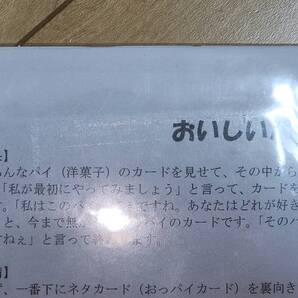 おいしいパ
】
んなパイ（洋菓子）のカードを見せて、その中から
「私が最初にやってみましょう」と言って、カードを
す。「私はこのパ ですね。あなたはどれが好き
と、今まで無 パイのカードです。「そのパ
すねぇ」と言って
】
ず、一番下にネタカード（おっパイカード）を裏向き